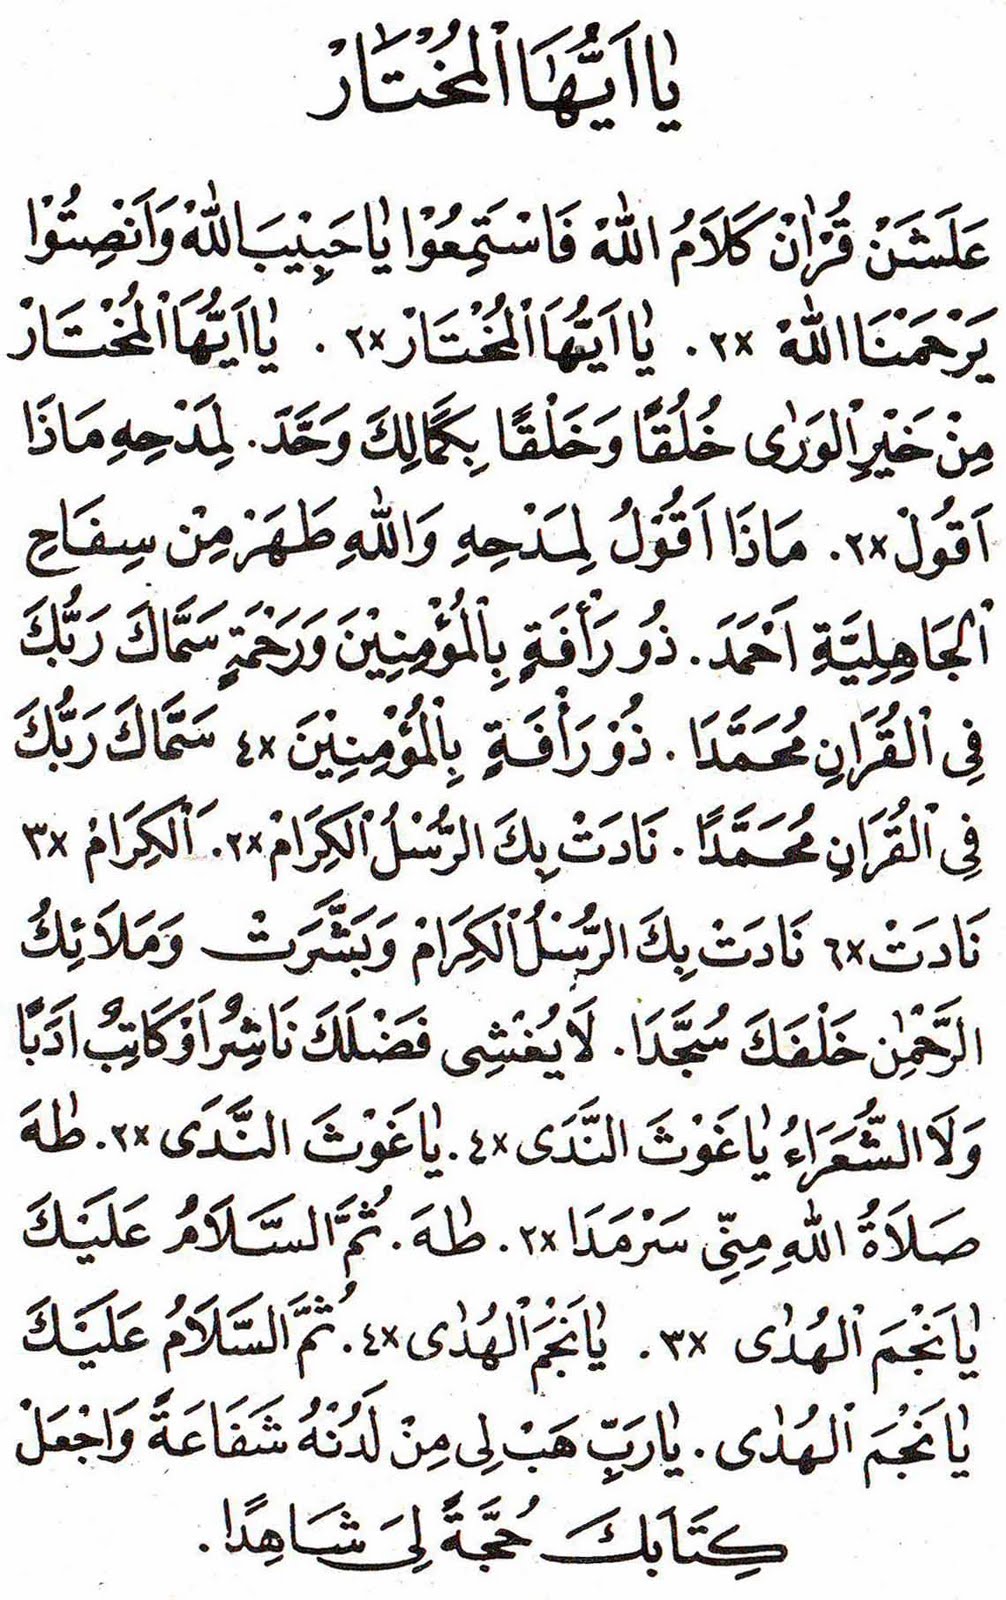 يٰا اَيُّهَا الْمُخْتَارْ
عَلَشَنْ قُرْاٰنْ كَلَامُ اللهْ فَاسْتَمِعُوْا يٰا حَبِيْبَ اللهْ وَاَنْصِتُوْا
يَرْحَمْنَا اللهْ ×٢. يٰا اَيُّهَا الْمُخْتَارْ ×٢. يٰا اَيُّهَا الْمُخْتَارْ
مِنْ خَيْرِ الْوَرٰى خُلُقًا وَخَلْقًا بِكَمَالِكَ وَحَّدَ. لِمَدْحِهِ مَاذَا
اَقُولْ ×٢. مَاذَا اَقُوْلُ لِمَدْحِهِ وَاللهِ طَهَرْ مِنْ سِفَاحِ
الْجَاهِلِيَّةِ اَحْمَدَ. ذُو رَأْفَةٍ بِالْمُؤْمِنِيْنَ وَرَحْمَةٍ سَمَّاكَ رَبُّكَ
فِى الْقُرَانِ مُحَمَّدَا. ذُوْ رَأْفَةٍ بِالْمُؤْمِنِيْنَ ×٤ سَمَّاكَ رَبُّكَ
فِى الْقُرَانِ مُحَمَّدًا. نَادَتْ بِكَ الرُّسْلُ الْكِرَامْ ×٢. اَلْكِرَامْ ×٣
نَادَتْ ×٦ نَادَتْ بِكَ الرُّسْلُ الْكِرَامْ وَبَشَّرَتْ وَمَلَائِكُ
الرَّحْمٰنِ خَلْفَكَ سُجَّدَا. لَا يُغْشِى فَضْلَكَ نَاشِرٌ اَوْ كَاتِبٌ ادَبًا
وَلَا الشُّعَرَاءُ يٰا غَوْثَ النَّدَى ×٤. يٰا غَوْثَ النَّدَى ×٢. طٰهَ
صَلَاةُ اللهِ مِنِّى سَرْمَدَا ×٢. طٰهَ. ثُمَّ السَّلَامُ عَلَيْكَ
يٰا نَجْمَ الْهُدٰى ×٣. يٰا نَجْمَ الْهُدٰى ×٤. ثُمَّ السَّلَامُ عَلَيْكَ
يٰا نَجْمَ الْهُدٰى. يٰارَبِّ هَبْ لِى مِنْ لَدُنْهُ شَفَاعَةً وَاجْعَلْ
كِتَابَكَ حُجَّةً لِىَ شَاهِدًا.